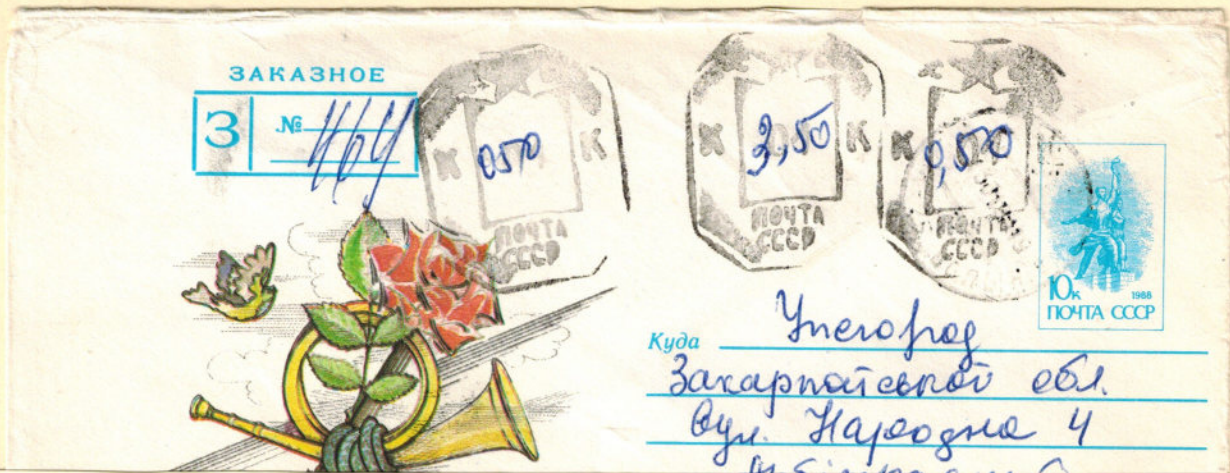 ЗАКАЗНОЕ
З № 464
К 0570 К
ПОЧТА
СССР
К 3,50 К
ПОЧТА
СССР
К 0,500
ПОЧТА
СССР
10к 1988
ПОЧТА СССР
Куда Ужгород
Закарпатської обл.
Вул. Народна 4